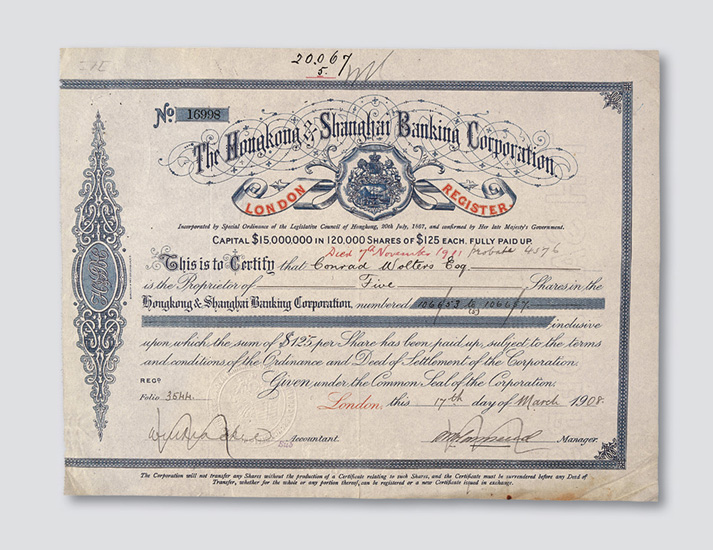 20.067
5.
No 16998
The Hongkong & Shanghai Banking Corporation.
LONDON REGISTER.
Incorporated by Special Ordinance of the Legislative Council of Hongkong, 20th July, 1867, and confirmed by Her late Majesty's Government.
CAPITAL $15,000,000 IN 120,000 SHARES OF $125 EACH, FULLY PAID UP.
Died 7th November 1911 probate 4576
This is to Certify that Conrad Wolters Esq
is the Proprietor of Five Shares in the
Hongkong & Shanghai Banking Corporation, numbered 106653 to 106657
(5)
inclusive
upon which the sum of $125 per Share has been paid up, subject to the terms
and conditions of the Ordinance and Deed of Settlement of the Corporation.
REGD Given under the Common Seal of the Corporation.
Folio 3544. London, this 17th day of March 1908.
Accountant. Manager.
The Corporation will not transfer any Shares without the production of a Certificate relating to such Shares, and the Certificate must be surrendered before any Deed of
Transfer, whether for the whole or any portion thereof, can be registered or a new Certificate issued in exchange.